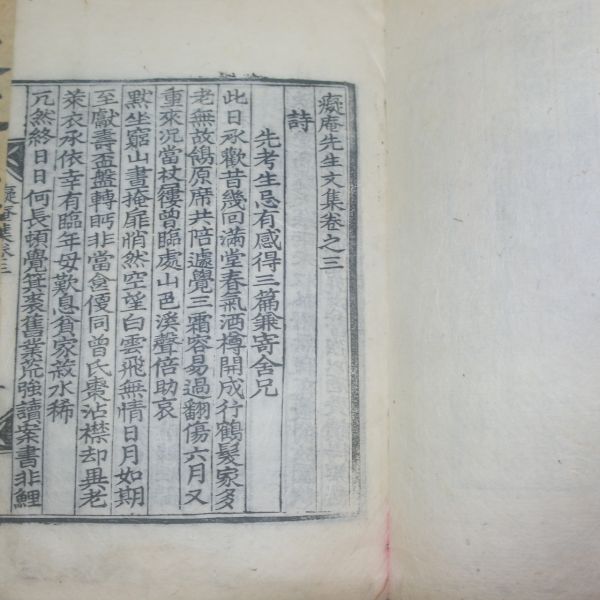 癡庵先生文集卷之三
詩
先考生忌有感得三篇兼寄舍兄
此日承歡昔幾回滿堂春氣酒樽開成行鶴髮家多
老無故鴒原席共陪遽覺三霜容易過翻傷六月又
重來況當杖屨曾臨處山色溪聲倍助哀
默坐窮山晝掩扉悄然空望白雲飛無情日月如期
至獻壽盃盤轉眄非當食優同曾氏棗沾襟却異老
萊衣承依幸有臨年母歎息貧家菽水稀
兀然終日日何長頓覺箕裘舊業荒強讀案書非鯉